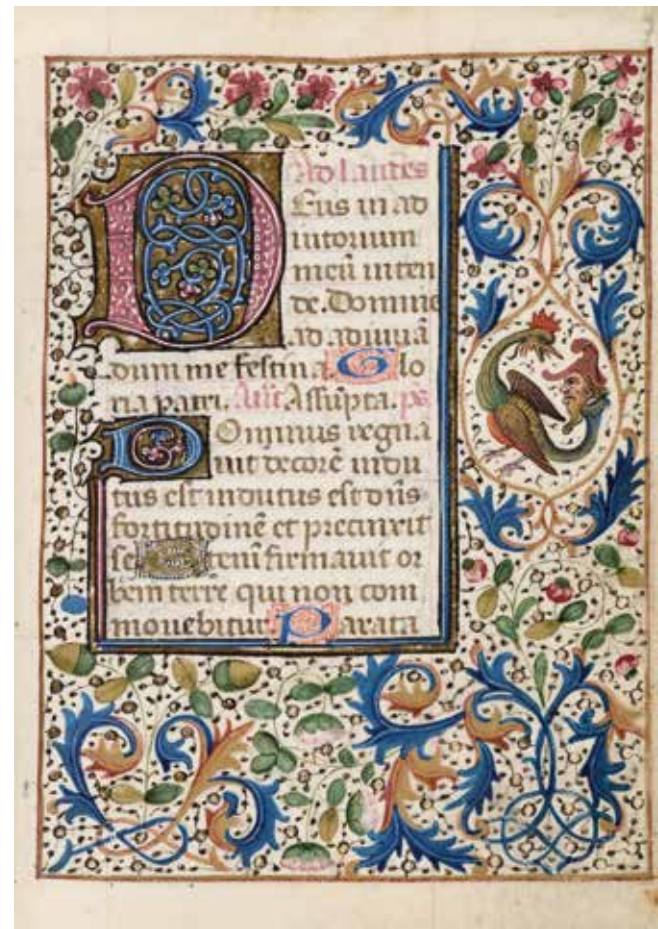 Ad laudes
Deus in ad
iutorium
meū inten
de. Domine
ad adiuuā
dum me festina. Glo
ria patri. Añ Assūpta. ps
Dominus regna
uit decorē indu
tus est indutus est dn̄s
fortitudinē et precinxit
se tem̄ firmauit or
bem terre qui non com
mouebitur Parata